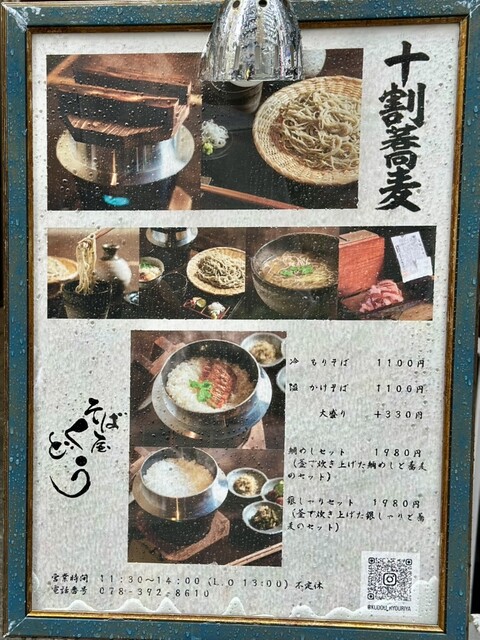 十割蕎麦
冷 もりそば 1100円
温 かけそば 1100円
大盛り +330円
鯛めしセット 1980円
(釜で炊き上げた鯛めしと蕎麦
のセット)
銀しゃりセット 1980円
(釜で炊き上げた銀しゃりと蕎
麦のセット)
そば屋
営業時間 11:30〜14:00 (L.O 13:00) 不定休
電話番号 078-392-8610